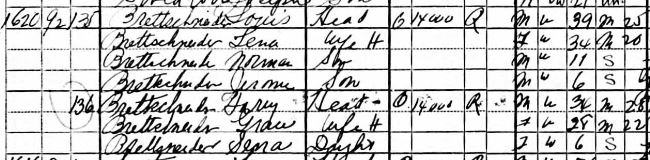 1620 92 135 Brettschneider Louis Head O 14000 R M W 39 M 25
Brettschneider Lena Wife H F W 34 M 20
Brettschneider Norman Son M W 11 S
Brettschneider Jerome Son M W 6 S
136 Brettschneider Harry Head O 14000 R M W 34 M 28
Brettschneider Grace Wife H F W 28 M 22
Brettschneider Daught F W 6 S